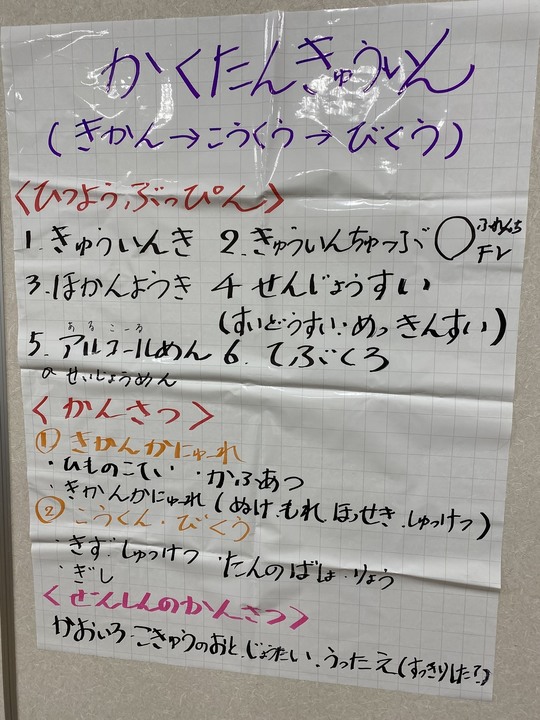 かくたんきゅういん
(きかん→こうくう→びくう)
<ひつようぶっぴん>
1. きゅういんき 2. きゅういんちゅーぶ ○ふれんち Fr
3. ほかんようき 4 せんじょうすい
(すいどうすい・めっきんすい)
あるこーる
5. アルコールめん 6. てぶくろ
or せいじょうめん
<かんさつ>
① きかんかにゅーれ
・ひものこてい ・かふあつ
・きかんかにゅーれ(ぬけ.もれ.ほっせき.しゅっけつ)
② こうくう・びくう
・きず.しゅっけつ ・たんのばしょ・りょう
・ぎし
<ぜんしんのかんさつ>
かおいろ・こきゅうのおと.じょうたい.うったえ(すっきりした?)